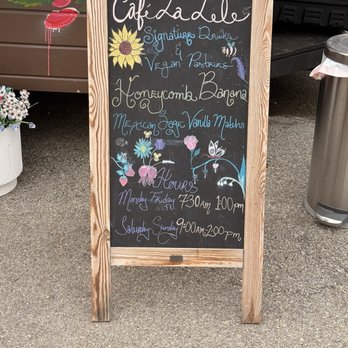 Café La Lele
Signature Drinks
&
Vegan Pastries
Honeycomb Banana
& Mexican Sage Vanilla Matcha
Hours
Monday-Friday 7:30AM 1:00pm
Saturday-Sunday 9:00AM-2:00pm